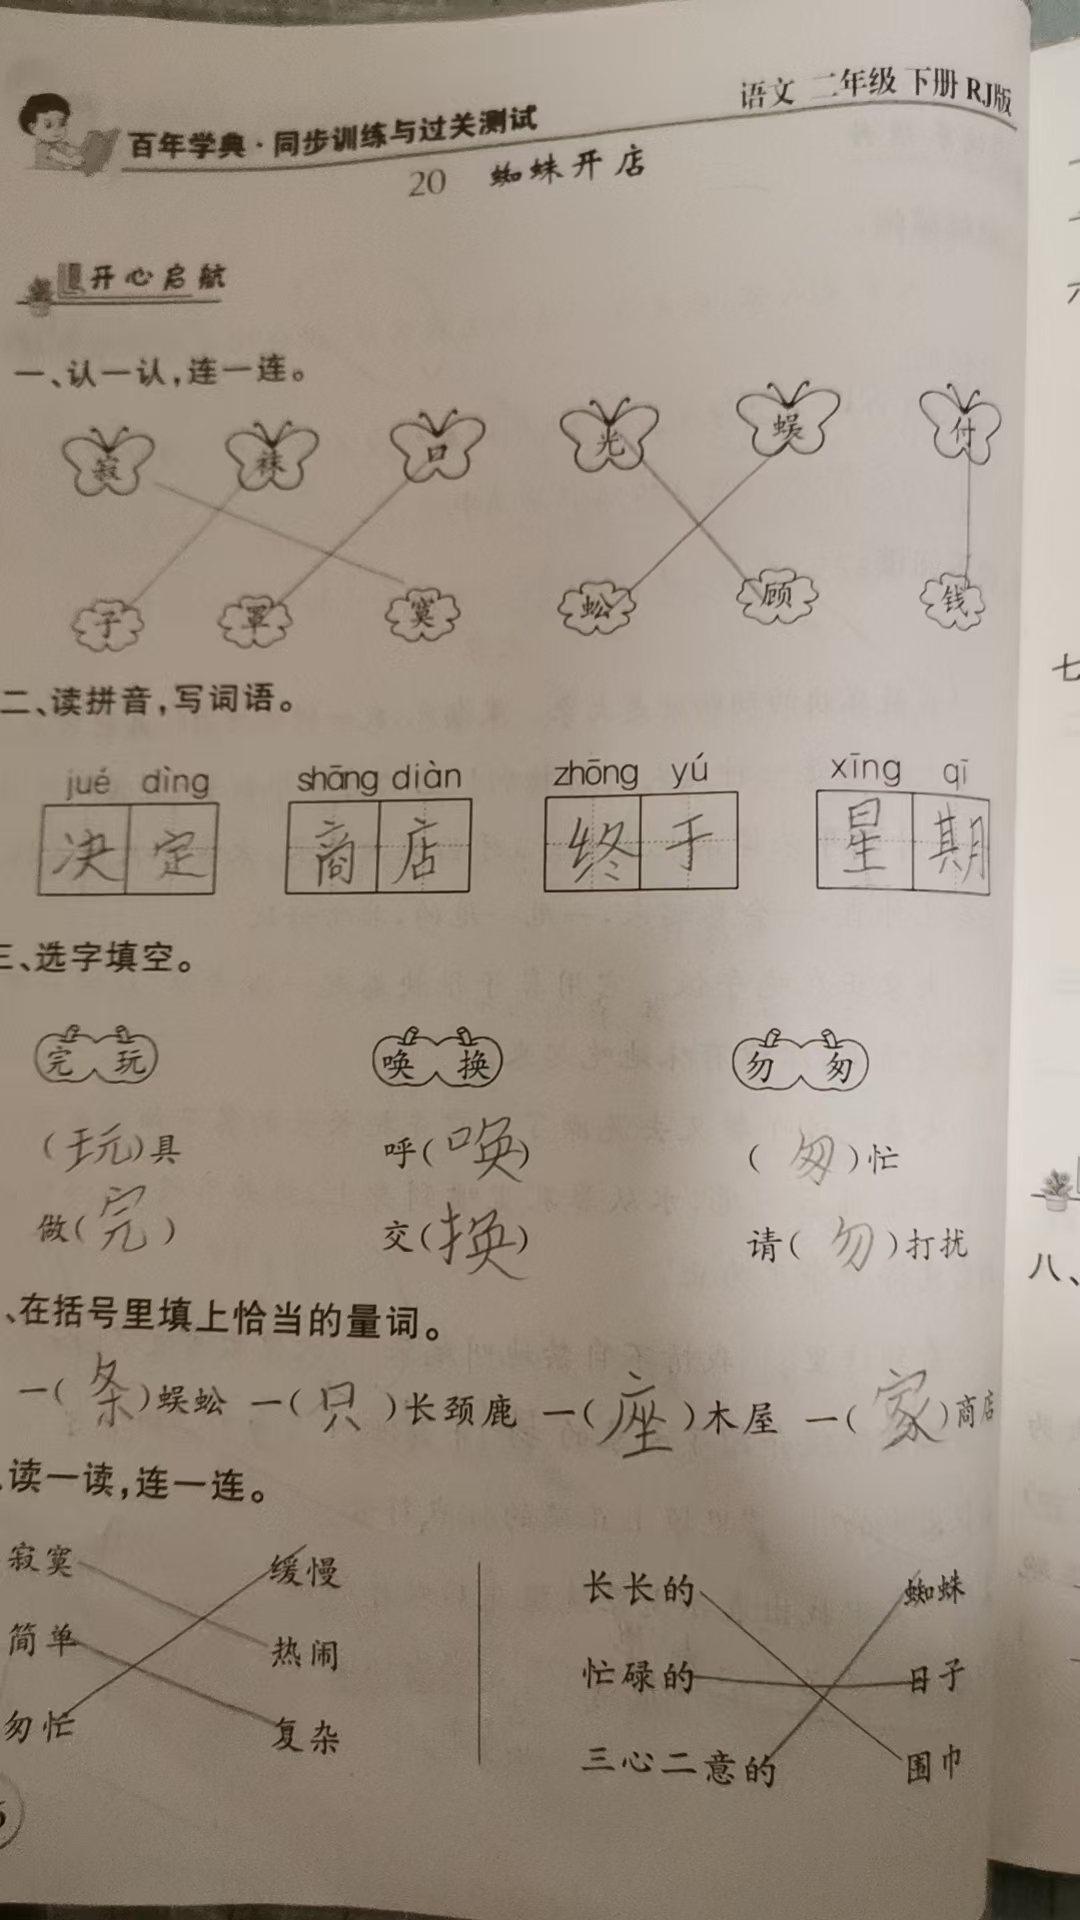 语文 二年级 下册 RJ版
百年学典·同步训练与过关测试
20 蜘蛛开店
开心启航
一、认一认,连一连。
寂 袜 口 光 蜈 付
子 罩 寞 蚣 顾 钱
二、读拼音,写词语。
jué dìng shāng diàn zhōng yú xīng qī
决定 商店 终于 星期
三、选字填空。
完 玩 唤 换 勿 匆
(玩)具 呼(唤) (匆)忙
做(完) 交(换) 请(勿)打扰
、在括号里填上恰当的量词。
一(条)蜈蚣 一(只)长颈鹿 一(座)木屋 一(家)商店
读一读,连一连。
寂寞 缓慢 长长的 蜘蛛
简单 热闹 忙碌的 日子
匆忙 复杂 三心二意的 围巾
七
八、